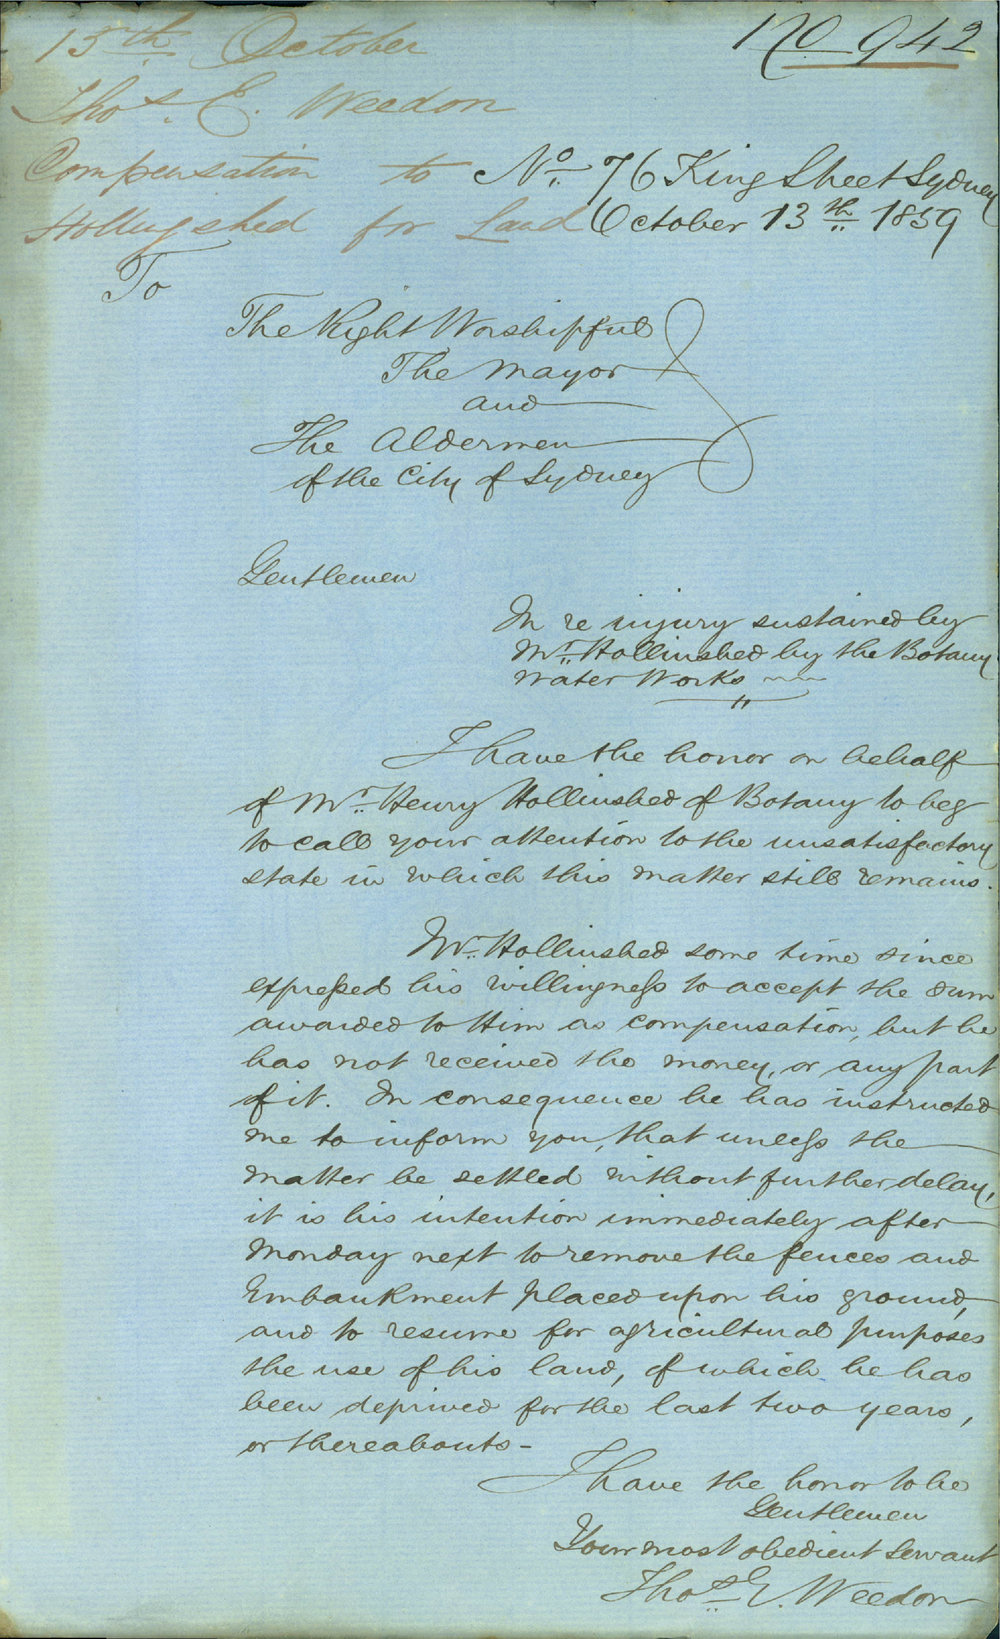 15th October
No 942
Thos. E. Weedon
Compensation to
Hollingshed for Land
No. 76 King Street Sydney
October 13th 1859
To
The Right Worshipful
The Mayor
and
The Aldermen
of the City of Sydney
Gentlemen
In re injury sustained by
Mr. Hollinshed by the Botany
Water Works
I have the honor on behalf
of Mr. Henry Hollinshed of Botany to beg
to call your attention to the unsatisfactory
state in which this matter still remains.
Mr. Hollinshed some time since
expressed his willingness to accept the sum
awarded to Him as compensation, but he
has not received the money, or any part
of it. In consequence he has instructed
me to inform you, that unless the
matter be settled without further delay,
it is his intention immediately after
Monday next to remove the fences and
Embankment placed upon his ground,
and to resume for agricultural purposes
the use of his land, of which he has
been deprived for the last two years,
or thereabouts -
I have the honor to be
Gentlemen
Your most obedient Servant
Thos. E. Weedon